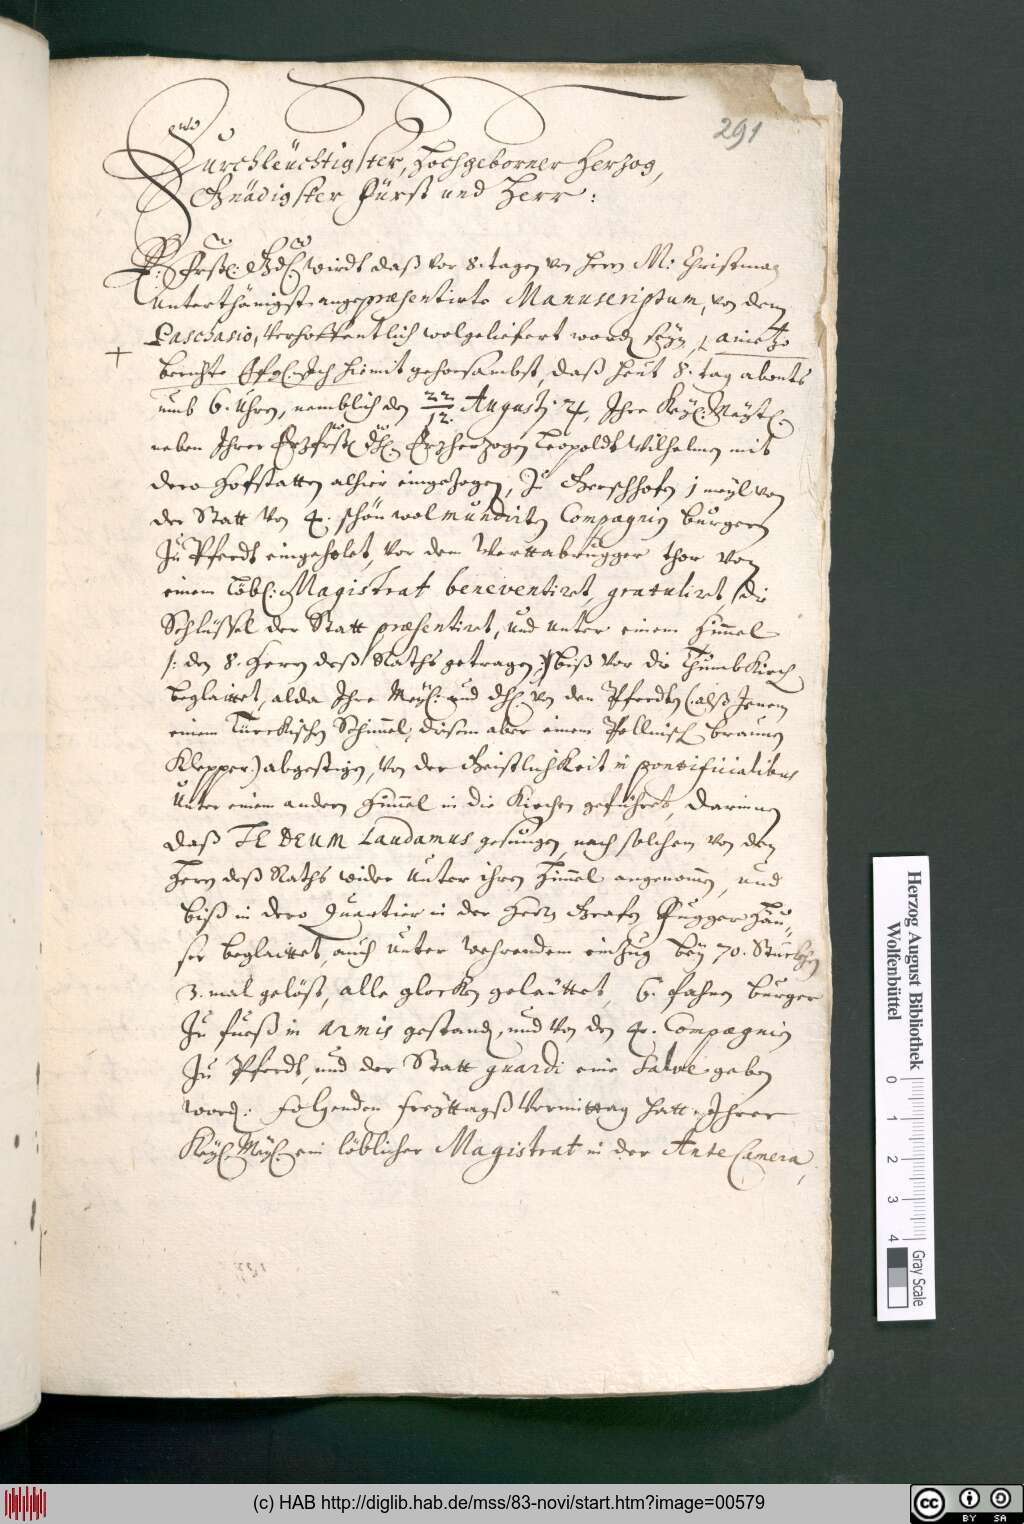 291
Durchleüchtigster, Hochgeborner Herzog,
Gnädigster Fürst und Herr:
E: Frstl: Gdl: wirdt daß vor 8. tagen von herrn M: Christman
underthänigst angepraesentirte Manuscriptum, von dem
Paschasio, verhoffentlich wolgeliefert word seyn,
berichte hiemit gehorsambst, daß heut 8. tag abents
umb 6. Uhren, nemblich den 22/12. Augusti, Ihre Keyl: Maystl:
neben Ihrer Erzfrstl: Dhl: Erzherzogen Leopoldt Wilhelmen mit
dero Hofstatten alhier eingezogen, zu Gerschhofen 1 meyl von
der Statt von 4. schön wolmundirten Compagnien burgern
zu Pferdt eingeholet, vor dem Werttabrugger thor von
einem Löbl: Magistrat beneventiret, gratuliret, die
Schlüssel der Statt praesentiret, und unter einem Himmel
/: den 8. Herrn deß Raths getragen :/ biß vor die Thumbkirch
beglaittet, alda Ihre Mayl: und Dhl: von den Pferdten (: alß Jenem
einem Türckischen Schimmel, disem aber einem Pollnisch braunen
Klepper) abgestigen, von der Geistlichkeit in pontificialibus
unter einem andern Himmel in die Kirchen geführet, darinnen
daß TE DEUM Laudamus gesungen, nach solchem von den
Herrn deß Raths wider unter ihren Himmel angenommen, und
biß in dero Quartier in der Herrn Grafen Fugger Häu-
ser beglaittet, auch unter wehrendem einzug bey 70. Stuckhen
3. mal gelöst, alle glocken geläuttet, 6. fahnen burger
zu fueß in armis gestanden, und von den 4. Compagnien
zu Pferdt, und der Statt guardi eine Salve geben
word: folgenden freyttagß Vormittag hatt Ihrer
Keyl: Mayl: ein löblicher Magistrat in der Ante Camera,
Herzog August Bibliothek
Wolfenbüttel
0 1 2 3 4
Gray Scale
(c) HAB http://diglib.hab.de/mss/83-novi/start.htm?image=00579
cc BY SA